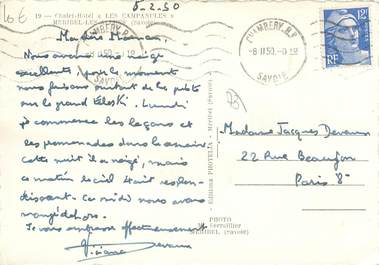 10€
8-2-50
19 - Chalet-Hôtel « LES CAMPANULES »
MÉRIBEL-LES- (Savoie)
CHAMBERY R.P.
-8 II 50
SAVOIE
12F
RF
Ma chère Maman,
Nous avons une neige
excellente, pour le moment
nous faisons surtout de la piste
sur le grand téléski. Lundi
je commence les leçons et
les promenades dans la
cette nuit il a neigé, mais
ce matin le ciel était resplen-
dissant. Ce midi nous avons
mangé dehors.
Je vous embrasse affectueusement
Madame Jacques
22 Rue Beaujon
Paris 8e
Editions PROTELLA - Méribel (Savoie)
PHOTO
MERIBEL (Savoie)